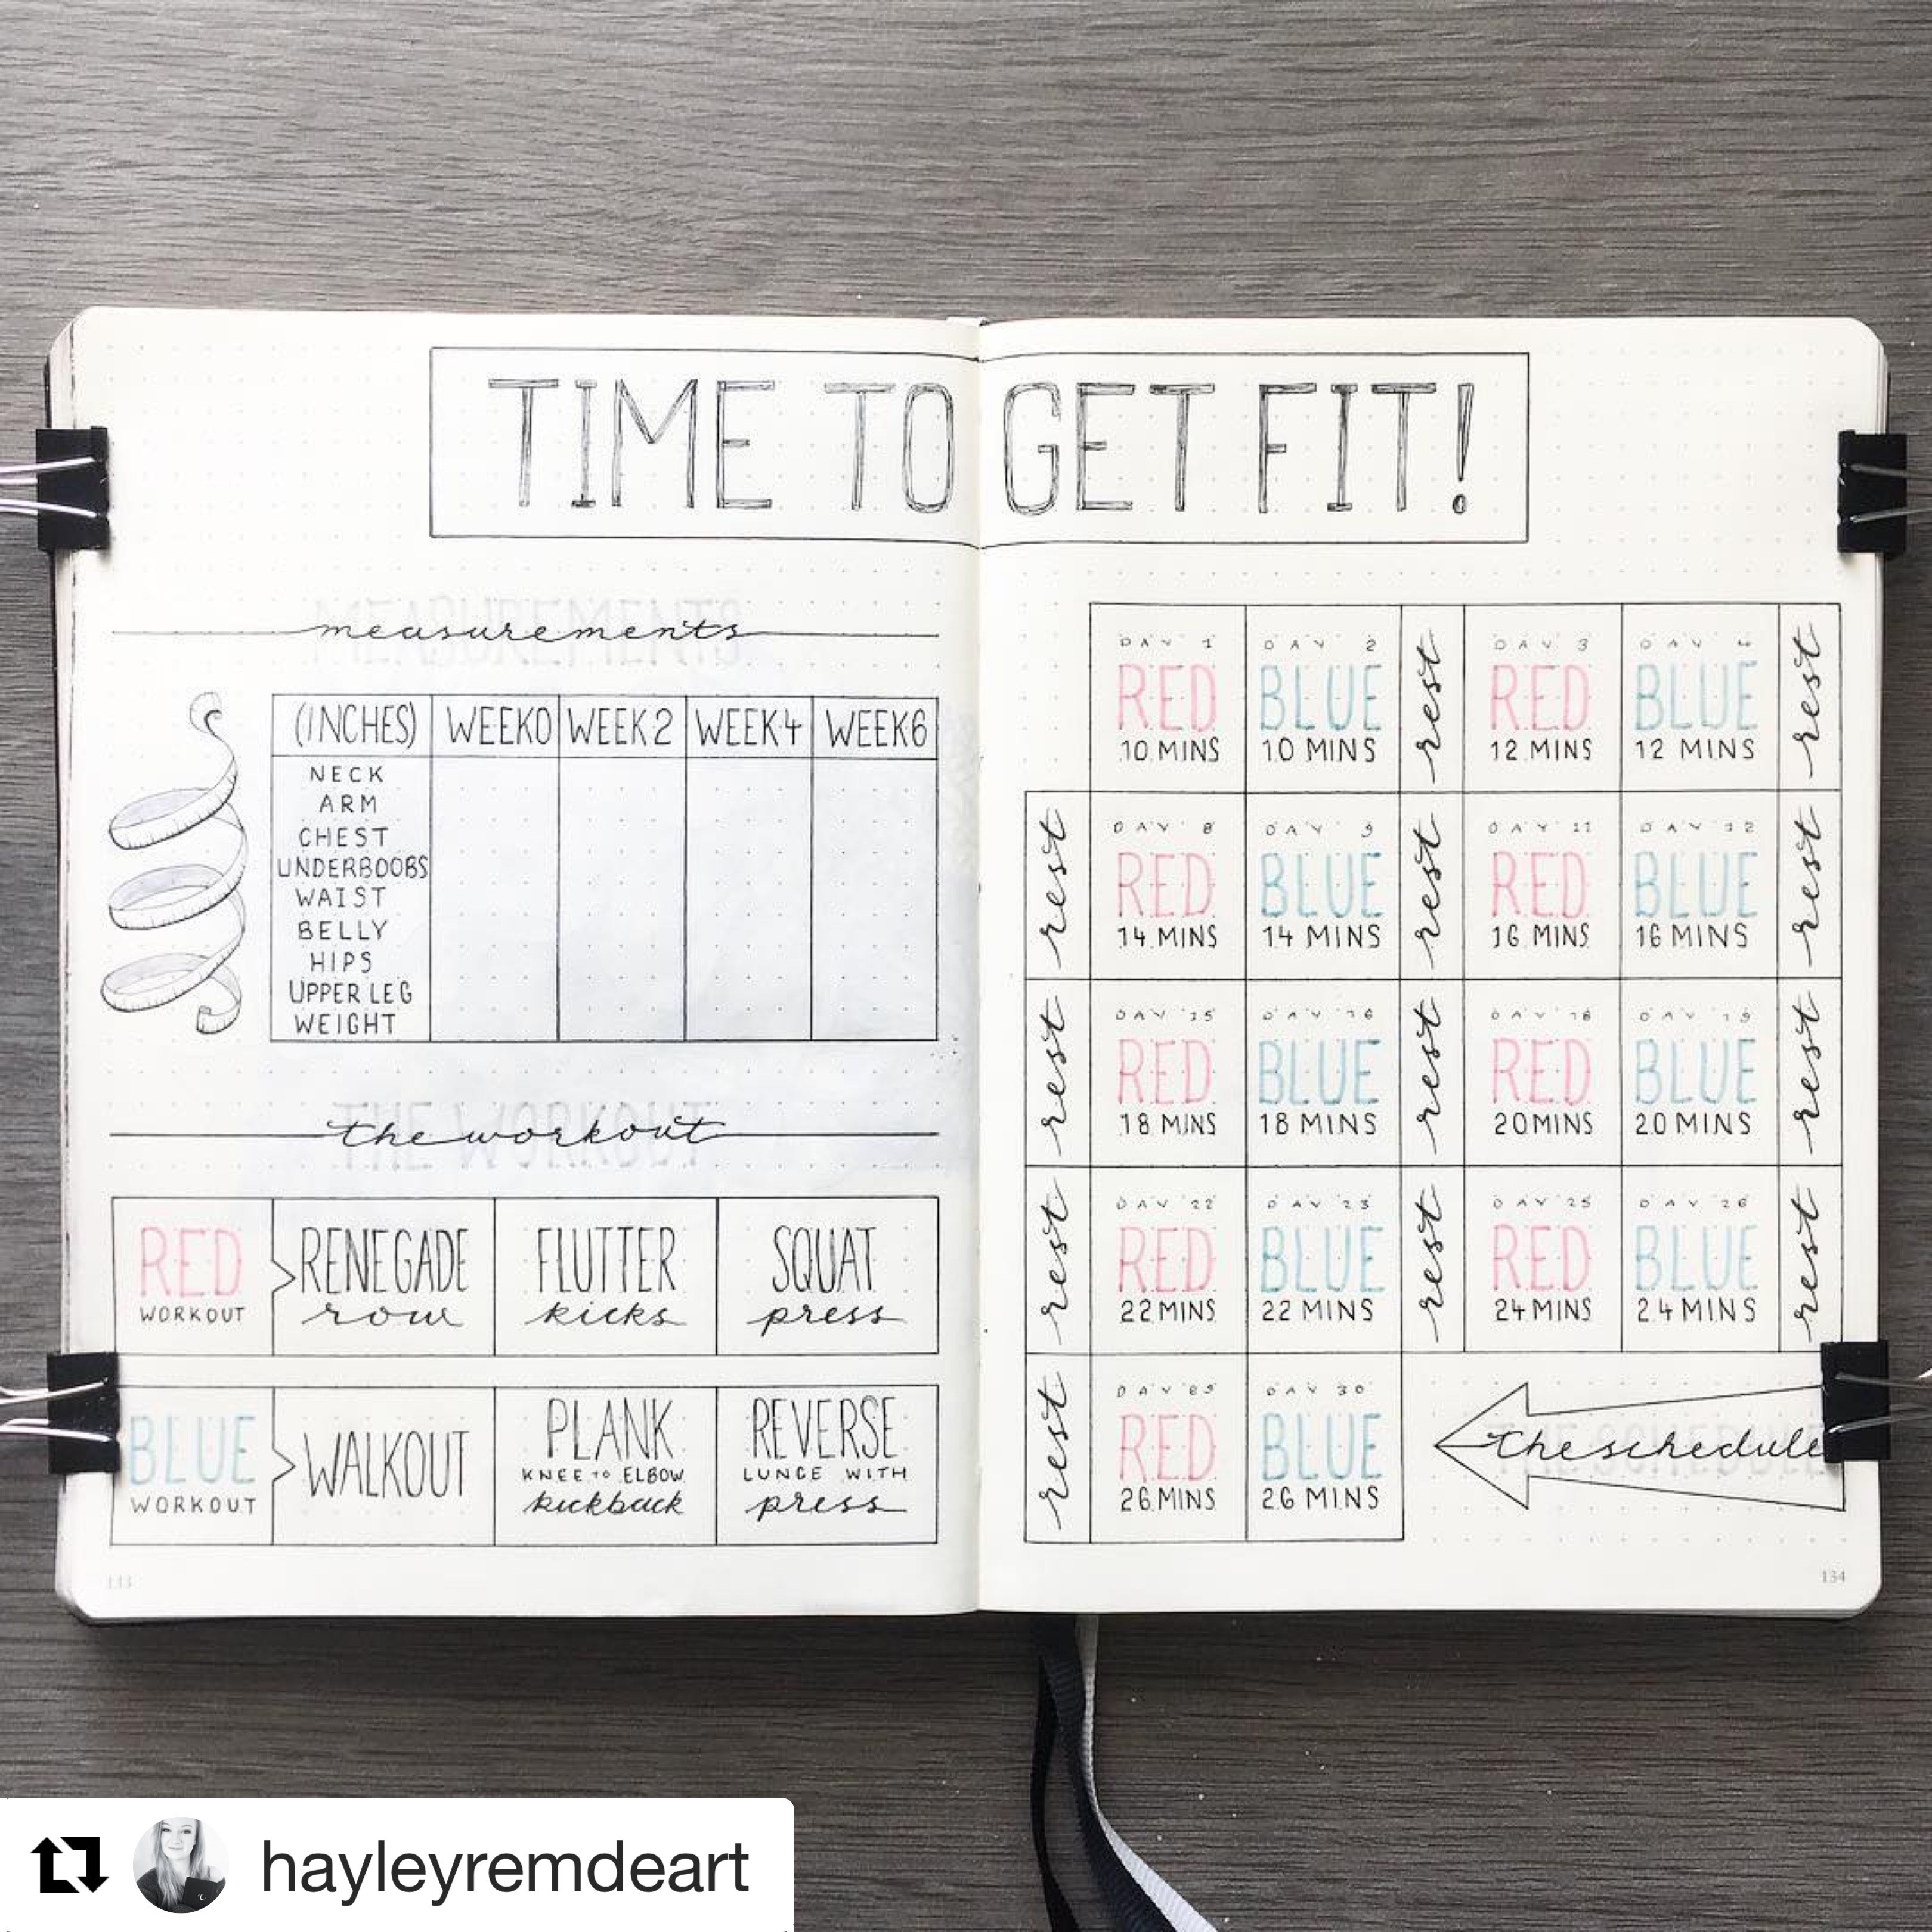 TIME TO GET FIT!
measurements
(INCHES) WEEK0 WEEK2 WEEK4 WEEK6
NECK
ARM
CHEST
UNDERBOOBS
WAIST
BELLY
HIPS
UPPER LEG
WEIGHT
the workout
RED WORKOUT
RENEGADE row
FLUTTER kicks
SQUAT press
BLUE WORKOUT
WALKOUT
PLANK KNEE TO ELBOW kickback
REVERSE LUNGE WITH press
133
DAY 1 RED 10 MINS
DAY 2 BLUE 10 MINS
rest
DAY 3 RED 12 MINS
DAY 4 BLUE 12 MINS
rest
rest
DAY 8 RED 14 MINS
DAY 9 BLUE 14 MINS
rest
DAY 11 RED 16 MINS
DAY 12 BLUE 16 MINS
rest
rest
DAY 15 RED 18 MINS
DAY 16 BLUE 18 MINS
rest
DAY 18 RED 20 MINS
DAY 19 BLUE 20 MINS
rest
rest
DAY 22 RED 22 MINS
DAY 23 BLUE 22 MINS
rest
DAY 25 RED 24 MINS
DAY 26 BLUE 24 MINS
rest
rest
DAY RED 26 MINS
DAY 30 BLUE 26 MINS
the schedule
134
hayleyremdeart